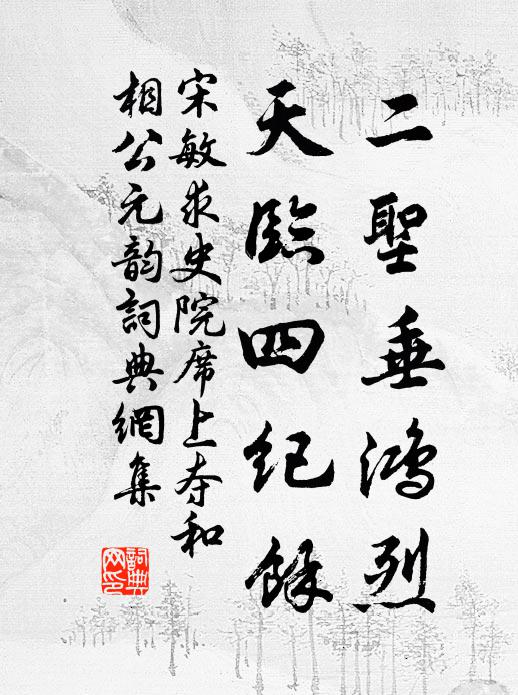 二聖垂鴻烈
天臨四紀餘
宋敏求史院席上奉和
相公元韵詞典網集
詞典
网印